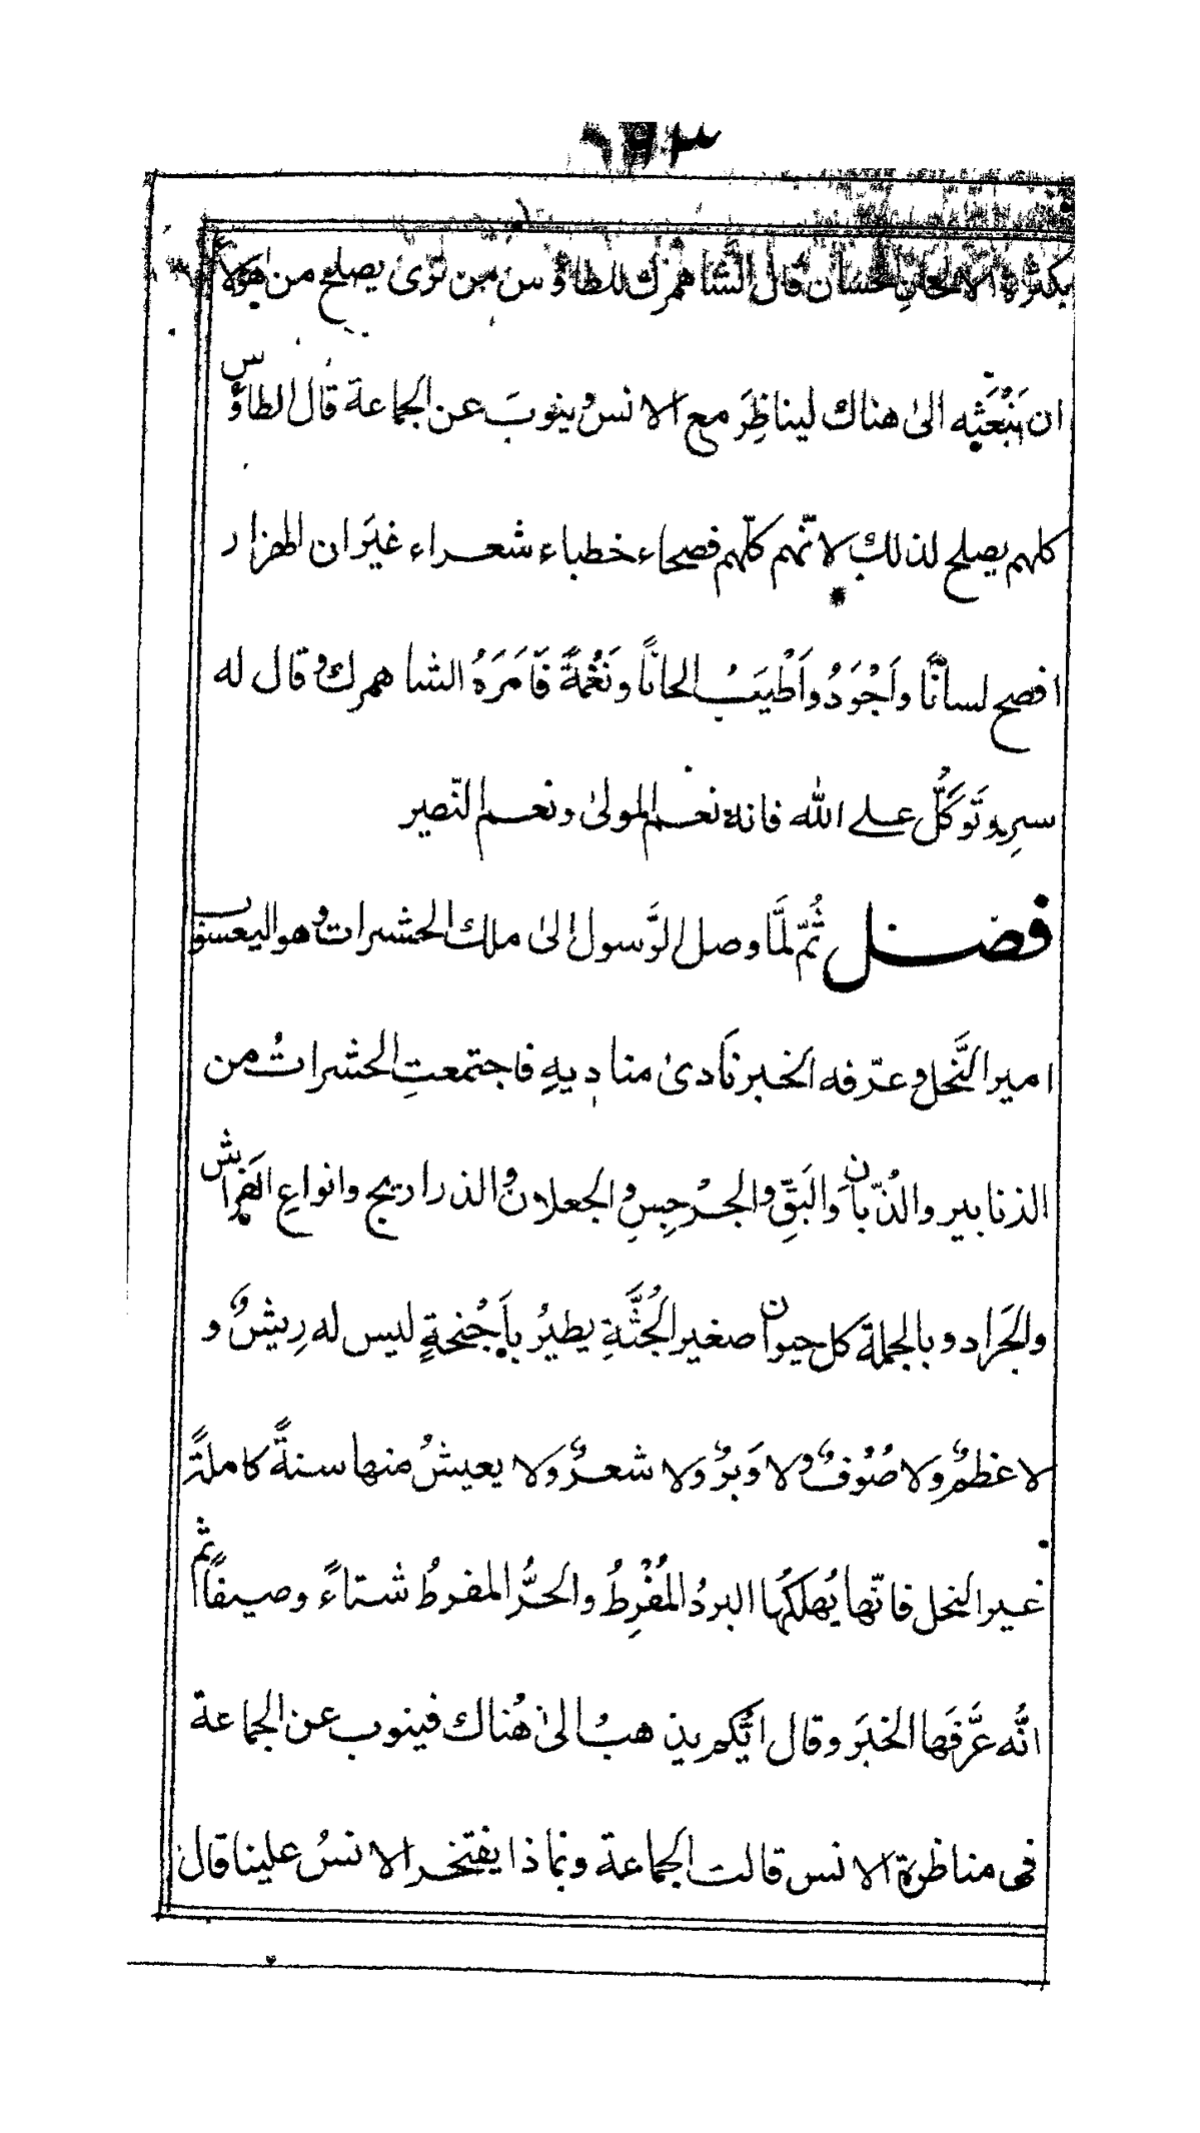 بكثرة الالحان الحسان قال الشاهمرك للطاؤس من ترى يصلح من هؤلاء
ان نَبْعَثِه الى هناك ليناظِرَ مع الانس وينوبَ عن الجماعة قال الطاؤس
كلهم يصلح لذلك لانّهم كلّهم فصحاء خطباء شعراء غيَر ان الهزار
افصح لسانًا واَجْوَدُ واَطْيَبُ الحانًا ونَغْمَةً فَاَمَرَهُ الشاهمرك وقال له
سِر وتَوَكَّلُ على الله فانه نعم المولىٰ ونعم النّصير
فصل ثُمّ لمَّا وصل الرَّسول الىٰ ملك الحشرات وهو اليعسوب
امير النَّحل وعرّفه الخبر نَادىٰ مناديهِ فاجتمعتِ الحشراتُ من
الذنابير والذُبّان والبَقِّ والجرْجِسِ والجعلان والذراريج وانواعِ الفَراش
والجَراد وبالجملة كل حيوان صغير الجُثَّةِ يطيرُ باَجْنحةٍ ليس له رِيشٌ و
لا عظمٌ ولا صُوْفٌ ولا وَبرٌ ولا شعرٌ ولا يعيشُ منها سنةً كاملةً
غير النحل فانّها يُهلكُها البردُ المُفْرِطُ والحرُّ المفرطُ شتاءً وصيفًا ثم
انّه عرَّفَها الخبَر وقال ايّكم يذهبُ الىٰ هُناك فينوب عن الجماعة
فى مناظرة الانس قالت الجماعة وبماذا يفتخر الانسُ علينا قال